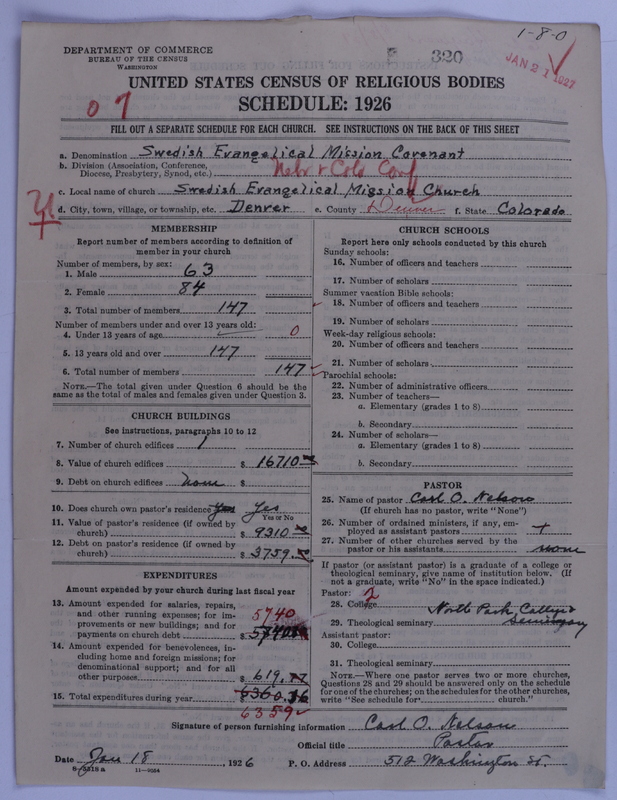 1-8-0
DEPARTMENT OF COMMERCE
BUREAU OF THE CENSUS
WASHINGTON
320
JAN 21 1927
UNITED STATES CENSUS OF RELIGIOUS BODIES
SCHEDULE: 1926
07
FILL OUT A SEPARATE SCHEDULE FOR EACH CHURCH. SEE INSTRUCTIONS ON THE BACK OF THIS SHEET
a. Denomination Swedish Evangelical Mission Covenant
b. Division (Association, Conference, Diocese, Presbytery, Synod, etc.) Nebr & Colo Conf
c. Local name of church Swedish Evangelical Mission Church
d. City, town, village, or township, etc. Denver e. County Denver f. State Colorado
MEMBERSHIP
Report number of members according to definition of
member in your church
Number of members, by sex:
1. Male 63
2. Female 84
3. Total number of members 147
Number of members under and over 13 years old:
4. Under 13 years of age 0
5. 13 years old and over 147
6. Total number of members 147
NOTE.—The total given under Question 6 should be the
same as the total of males and females given under Question 3.
CHURCH BUILDINGS
See instructions, paragraphs 10 to 12
7. Number of church edifices 1
8. Value of church edifices $ 16710
9. Debt on church edifices none $
10. Does church own pastor's residence yes Yes
Yes or No
11. Value of pastor's residence (if owned by
church) $ 9310
12. Debt on pastor's residence (if owned by
church) $ 3759
EXPENDITURES
Amount expended by your church during last fiscal year
13. Amount expended for salaries, repairs,
and other running expenses; for im-
provements or new buildings; and for
payments on church debt $ 5740
14. Amount expended for benevolences, in-
cluding home and foreign missions; for
denominational support; and for all
other purposes $ 619.77
15. Total expenditures during year $ 6360.16
6359
CHURCH SCHOOLS
Report here only schools conducted by this church
Sunday schools:
16. Number of officers and teachers
17. Number of scholars
Summer vacation Bible schools:
18. Number of officers and teachers
19. Number of scholars
Week-day religious schools:
20. Number of officers and teachers
21. Number of scholars
Parochial schools:
22. Number of administrative officers
23. Number of teachers—
a. Elementary (grades 1 to 8)
b. Secondary
24. Number of scholars—
a. Elementary (grades 1 to 8)
b. Secondary
PASTOR
25. Name of pastor Carl O. Nelson
(If church has no pastor, write "None")
26. Number of ordained ministers, if any, em-
ployed as assistant pastors
27. Number of other churches served by the
pastor or his assistants none
If pastor (or assistant pastor) is a graduate of a college or
theological seminary, give name of institution below. (If
not a graduate, write "No" in the space indicated.)
Pastor: 2
28. College North Park College
29. Theological seminary Seminary
Assistant pastor:
30. College
31. Theological seminary
NOTE.—Where one pastor serves two or more churches,
Questions 28 and 29 should be answered only on the schedule
for one of the churches; on the schedules for the other churches,
write "See schedule for church."
Signature of person furnishing information Carl O. Nelson
Official title Pastor
Date Jan 18, 1926 P. O. Address 512 Washington St.
8-5318 a 11-9054